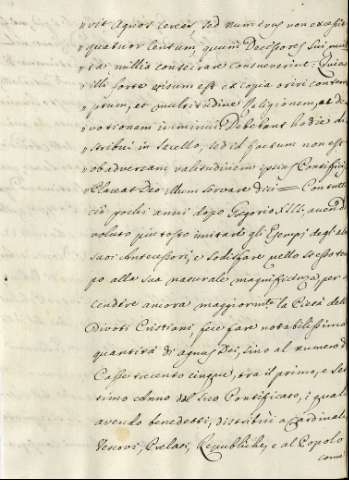 " vit Agnos Cereos, sed numerus non excessit
" quatuor Centum, quum Decessores sui mul
" ta millia consecrare consueverint. Quia
" illi forte visum est ex copia oriri contem
" ptum, et multitudine Religionem, et de
" votionem imminui. Debebant hodie di
" stribui in Sacello, sed id factum non est
" ob adversam valitudinem ipsius Pontificis,
" Placeat Deo illum servare diu = Contutto
ciò pochi anni dopo Gregorio XIII. avendo
voluto più tosto imitare gli Esempi degl'al
suoi Antecessori, e sodisfare nello stesso tem
po alla sua naturale magnificenza per ac
cendere ancora maggiormte. la Pietà delli
Divoti Cristiani, fece fare notabilissima
quantità di agnus Dei, sino al numero di
Casse trecento cinque, tra il primo, e set
timo Anno del suo Pontificato, i quali
avendo benedetti, distribuì a Cardinali
Vescovi, Prelati, Republiche, e al Popolo
come